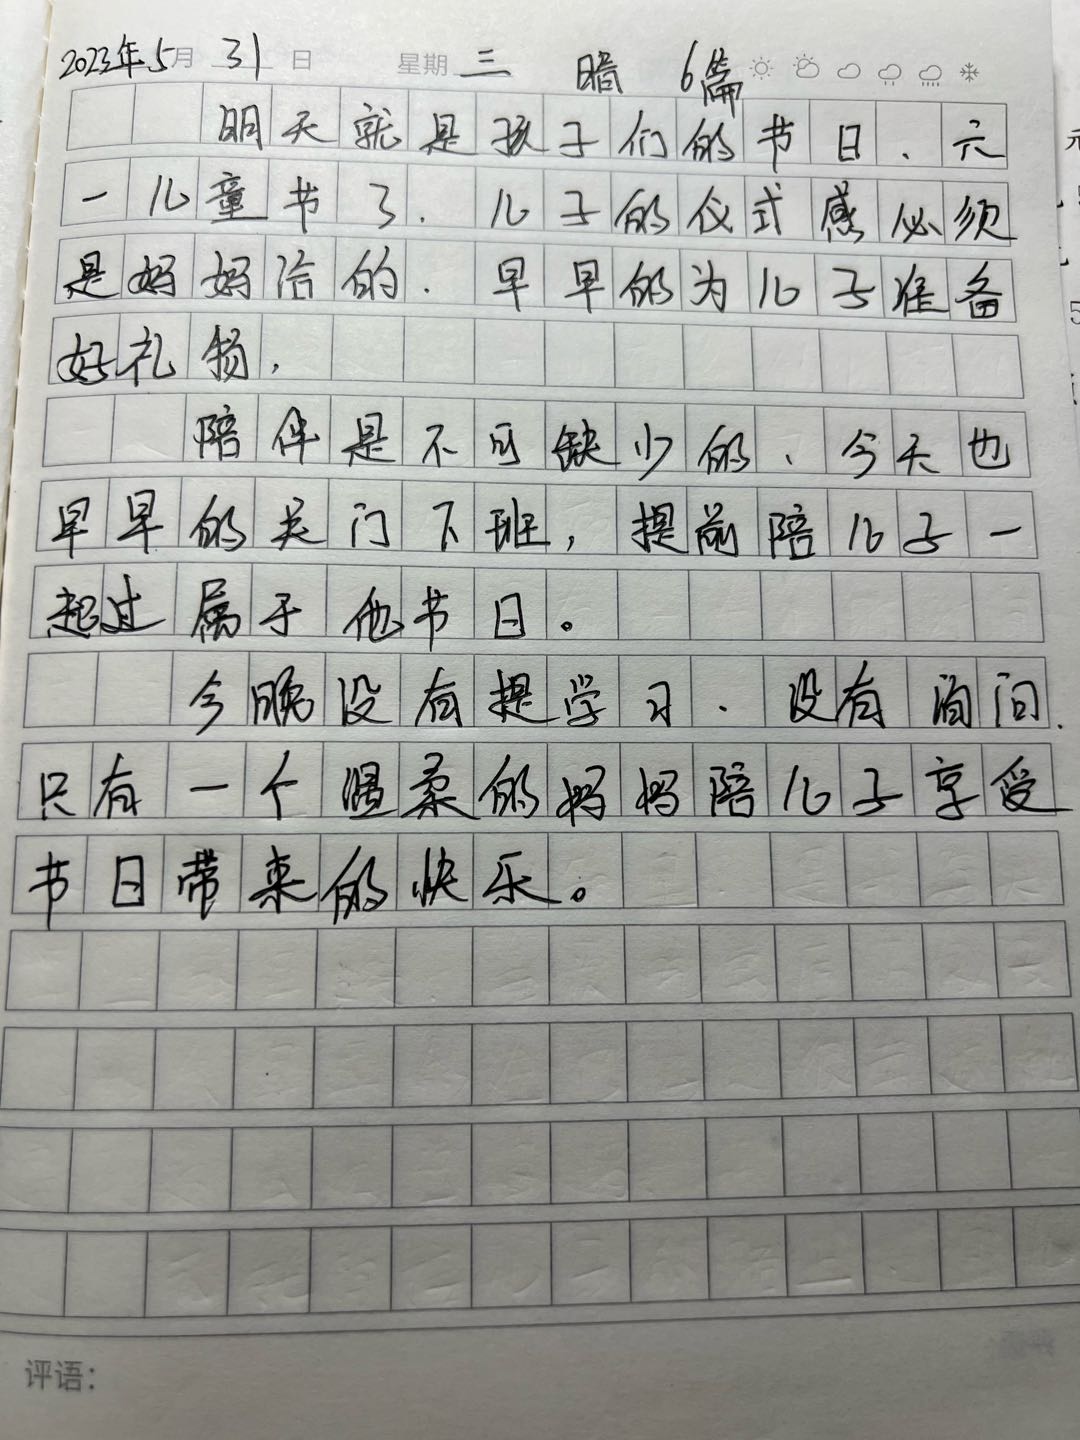 2023年5月31日 星期三 暗 6篇
明天就是孩子们的节日、六
一儿童节了. 儿子的仪式感必须
是妈妈给的. 早早的为儿子准备
好礼物,
陪伴是不可缺少的、今天也
早早的关门下班, 提前陪儿子一
起过属于他节日。
今晚没有提学习. 没有询问.
只有一个温柔的妈妈陪儿子享受
节日带来的快乐。
评语: